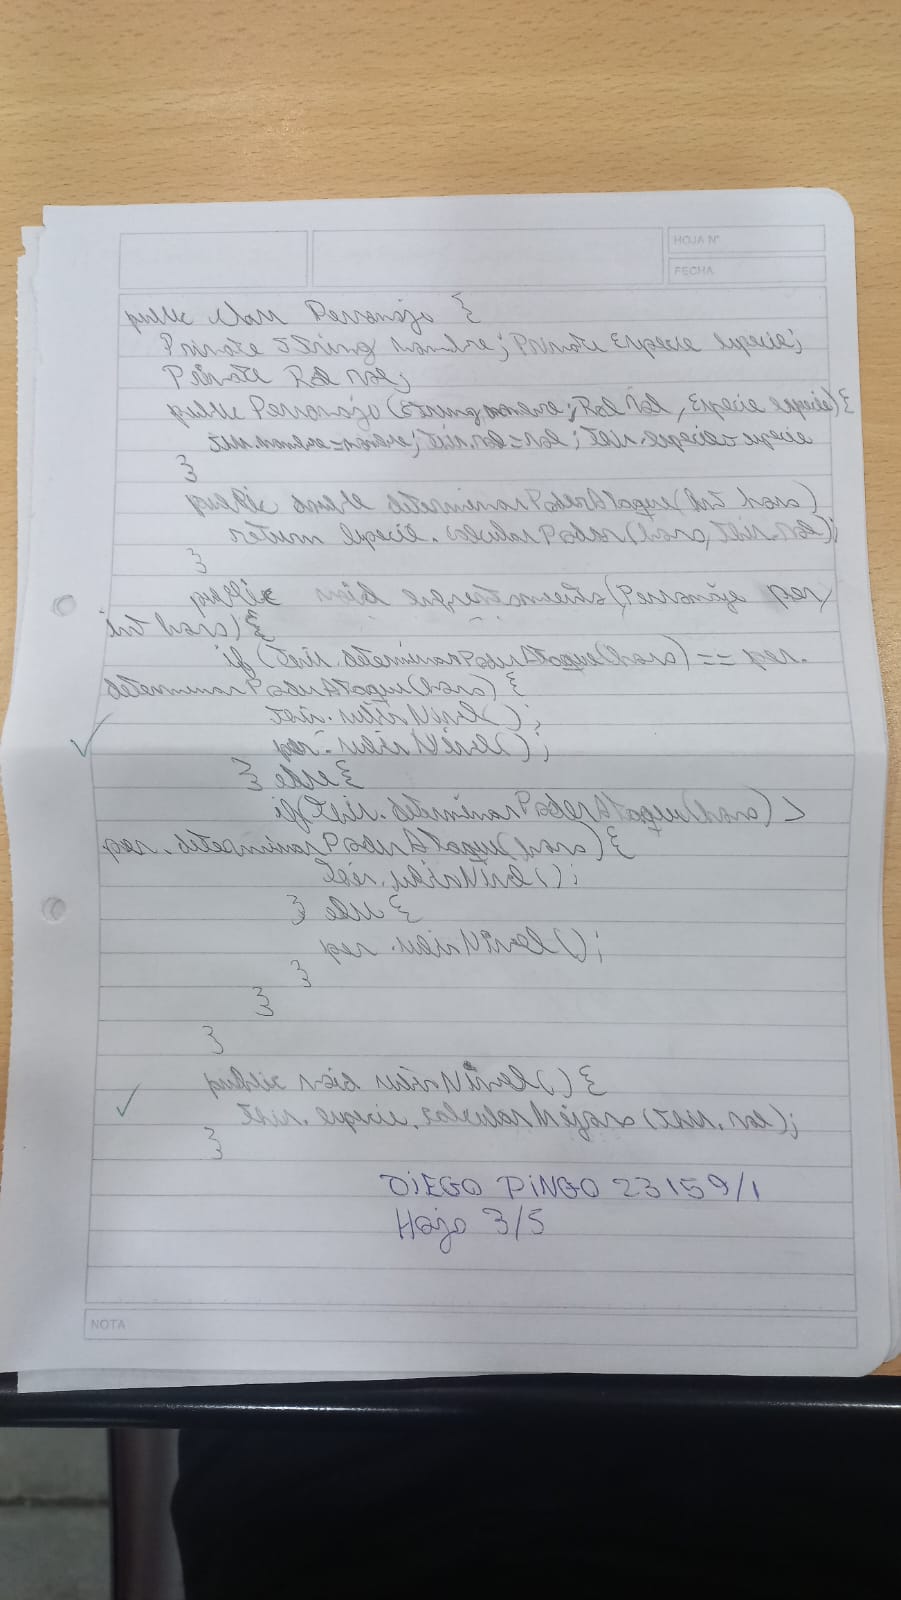 HOJA N°
FECHA
public class Personaje {
Private String nombre; Private Especie especie;
Private Rol rol;
public Personaje (String nombre, Rol rol, Especie especie) {
this.nombre=nombre; this.rol=rol; this.especie=especie
}
public double determinarPoderAtaque(int hora)
return especie.calcularPoder(hora, this.rol);
}
public void (Personaje per,
int hora) {
if (this.determinarPoderAtaque(hora) == per.
determinarPoderAtaque(hora) {
this.subirNivel();
per.subirNivel();
} else {
if(this.determinarPoderAtaque(hora) <
per.determinarPoderAtaque(hora) {
this.subirNivel();
} else {
per.subirNivel();
}
}
}
public void subirNivel() {
this.especie.calcularMejora(this.rol);
}
DIEGO PINGO 23159/1
Hoja 3/5
NOTA